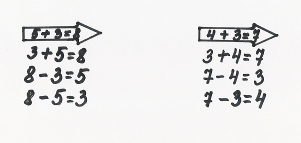 5+3=8
3+5=8
8-3=5
8-5=3
4+3=7
3+4=7
7-4=3
7-3=4